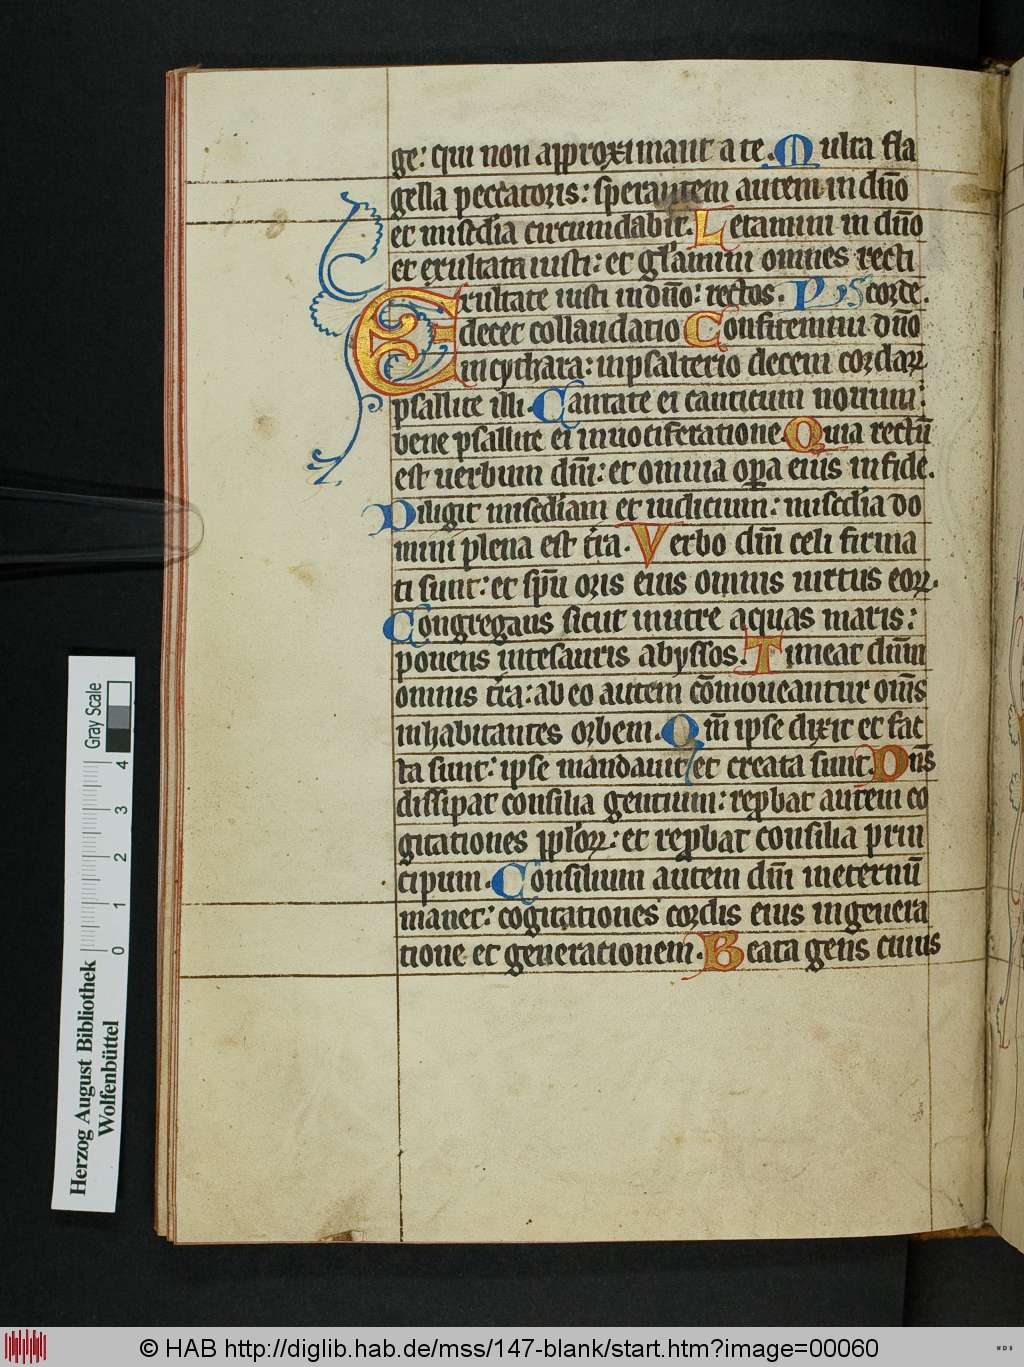 ge: qui non approximant a te. Multa fla
gella peccatoris: sperantem autem in dn̄o
et misc̄dia circumdabit. Letamini in dn̄o
et exultata iusti: et gl̄amini omnes recti
Exultate iusti in dn̄o: rectos. Ps corde.
decet collaudatio Confitemini dn̄o
in cythara: in psalterio decem cordarꝝ
psallite illi. Cantate ei canticum nouum:
bene psallite ei in uociferatione. Quia rectū
est uerbum dn̄i: et omnia opa eius in fide.
Diligit misc̄diam et iudicium: misc̄dia do
mini plena est tr̄a. Verbo dn̄i celi firma
ti sunt: et spū oris eius omnis uirtus eorꝝ.
Congregans sicut in utre aquas maris:
ponens in tesauris abyssos. Timeat dn̄m
omnis tr̄a: ab eo autem cōmoueantur oms̄
inhabitantes orbem. Qm̄ ipse dixit et fac
ta sunt: ipse mandauit et creata sunt. Dn̄s
dissipat consilia gentium: reprobat autem co
gitationes pplorꝝ: et reprobat consilia prin
cipum. Consilium autem dn̄i in eternū
manet: cogitationes cordis eius in genera
tione et generationem. Beata gens cuius
Gray Scale
0 1 2 3 4
Herzog August Bibliothek
Wolfenbüttel
© HAB http://diglib.hab.de/mss/147-blank/start.htm?image=00060